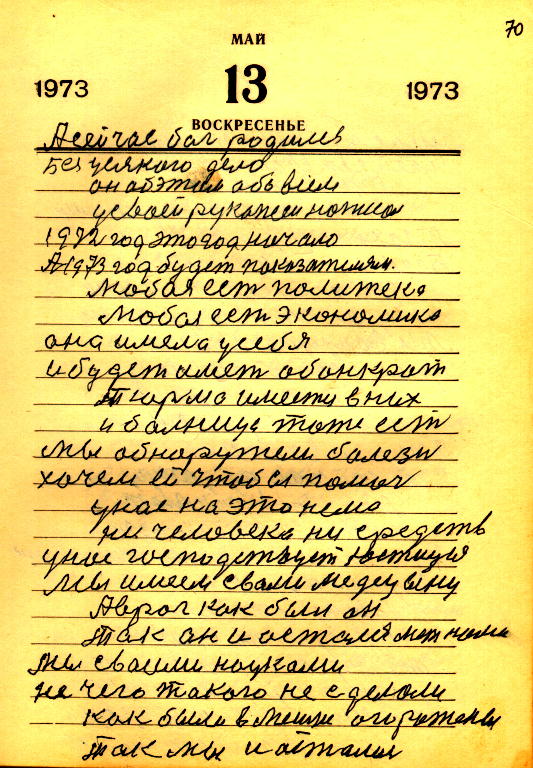 70
МАЙ
1973 13 1973
ВОСКРЕСЕНЬЕ
А сейчас бог родился
Без усякого дело
он обэтем обовсем
усвоей рукаписи написал
1972 год этогод начало
А 1973 год будет показателям.
Мобая ест политека
Мобая ест экономика
она имела усебя
и будет имет обонкрот
тюрма имести в них
и балница тоже ест
Мы обнаружели болезн
хочем ей чтобы помоч
унас на это нема
ни человека ни средств
унас господствует юстиция
Мы имеем сваю медецыну
А врог как был он
так он и остался меж нами
Мы сваими науками
не чего такого не сделали
как были в мешке
так мы и остался